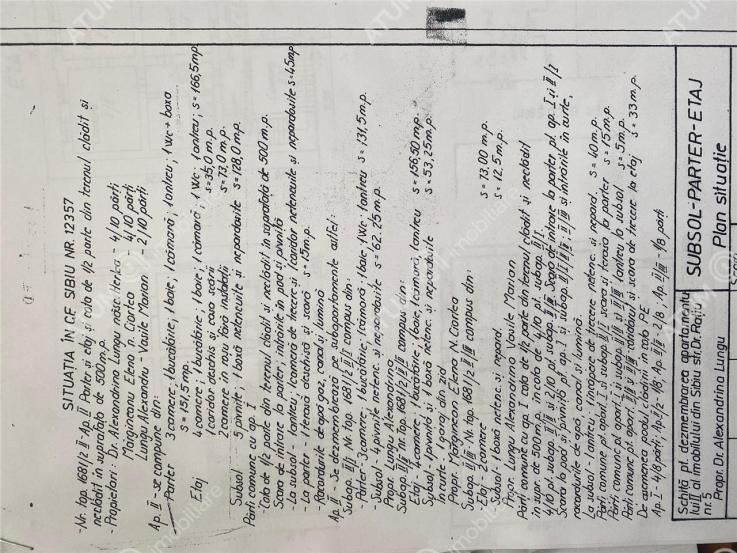 SITUAȚIA ÎN C.F. SIBIU NR. 12357
-Nr. top. 1681/2 II - Ap. II Parter și etaj și cota de 1/2 parte din terenul clădit și
neclădit în suprafață de 500 m.p.
-Propietari: Dr. Alexandrina Lungu născ. - 4/10 părți
Mărgineanu Elena n. Ciortea - 4/10 părți
Lungu Alexandru - Vasile Marian - 2/10 părți
Ap. II - se compune din:
Parter 3 camere; 1 bucătărie; 1 baie; 1 cămară; 1 antreu; 1 Wc + boxa
s = 151,5 mp.
Etaj 4 camere; 1 bucătărie; 1 baie; 1 cămară; 1 Wc; 1 antreu; s = 166,5 mp
1 coridor deschis și casa scării s = 35,0 m.p.
2 camere în roșu fără instalații s = 73,0 m.p.
Subsol 5 pivnite; 1 boxă netencuite și nepardosite s = 128,0 mp.
Părți comune cu ap. I
-Cota de 1/2 parte din terenul clădit și neclădit în suprafață de 500 m.p.
Scara de intrare la parter; intrările în pod și pivniță
-La subsol - 1 antreu; 1 cameră de trecere și 1 coridor netencuite și nepardosite s = 45 mp
-La parter - 1 terasă deschisă și scară s = 15 m.p.
-Racordurile de apă gaz, canal și lumină
Ap. II - Se dezmembrează pe subapartamente astfel:
Subap. Nr. top. 1681/2 compus din:
-Parter - 3 camere; 1 bucătărie; 1 cămară; 1 baie; 1 Wc; 1 antreu s = 131,5 m.p.
-Subsol - 4 pivnite netenc. și nepardosite s = 62,25 m.p.
Propr. Lungu Alexandrina
Subap. Nr. top. 1681/2 compus din:
Etaj - 4 camere; 1 bucătărie; 1 baie, 1 cămară, 1 antreu s = 156,50 m.p.
Subsol - 1 pivniță și 1 boxă netenc. și nepardosite s = 53,25 m.p.
În curte - 1 garaj din zid
Propr. Mărginean Elena N. Ciortea
Subap. Nr. top. 1681/2 compus din:
Etaj - 2 camere s = 73,00 m.p.
Subsol - 1 boxă netenc. și nepard. s = 12,5 m.p.
Propr. Lungu Alexandrino Vasile Marian
Părți comune cu ap. I cota de 1/2 parte din terenul clădit și neclădit
în supr. de 500 m.p. în cota de 4/10 pt. subap.
4/10 pt. subap. și 2/10 pt. subap. Scara de intrare la parter pt. ap. I și
Scara la pod și pivniță pt. ap. I și subap. și intrările în curte,
racordurile de apă, canal și lumină.
La subsol - 1 antreu; 1 încăpere de trecere netenc. și nepard. s = 40 m.p.
Părți comune pt. apart. I și subap. scara și terasa la parter s = 15 m.p.
Părți comune pt. apart. I și subap. 1 antreu la subsol s = 5 m.p.
Părți comune pt. apart. holul și scara de trecere la etaj s = 33 m.p.
De asemenea podul clădirii în cota PE
Ap. I - 4/8 părți; Ap. - 1/8; Ap. - 2/8; Ap. - 1/8 părți
Schiță pt. dezmembrarea apartamentu
lui II al imobilului din Sibiu str. Dr. Rațiu
nr. 5
Propr. Dr. Alexandrina Lungu
SUBSOL-PARTER-ETAJ
Plan situație